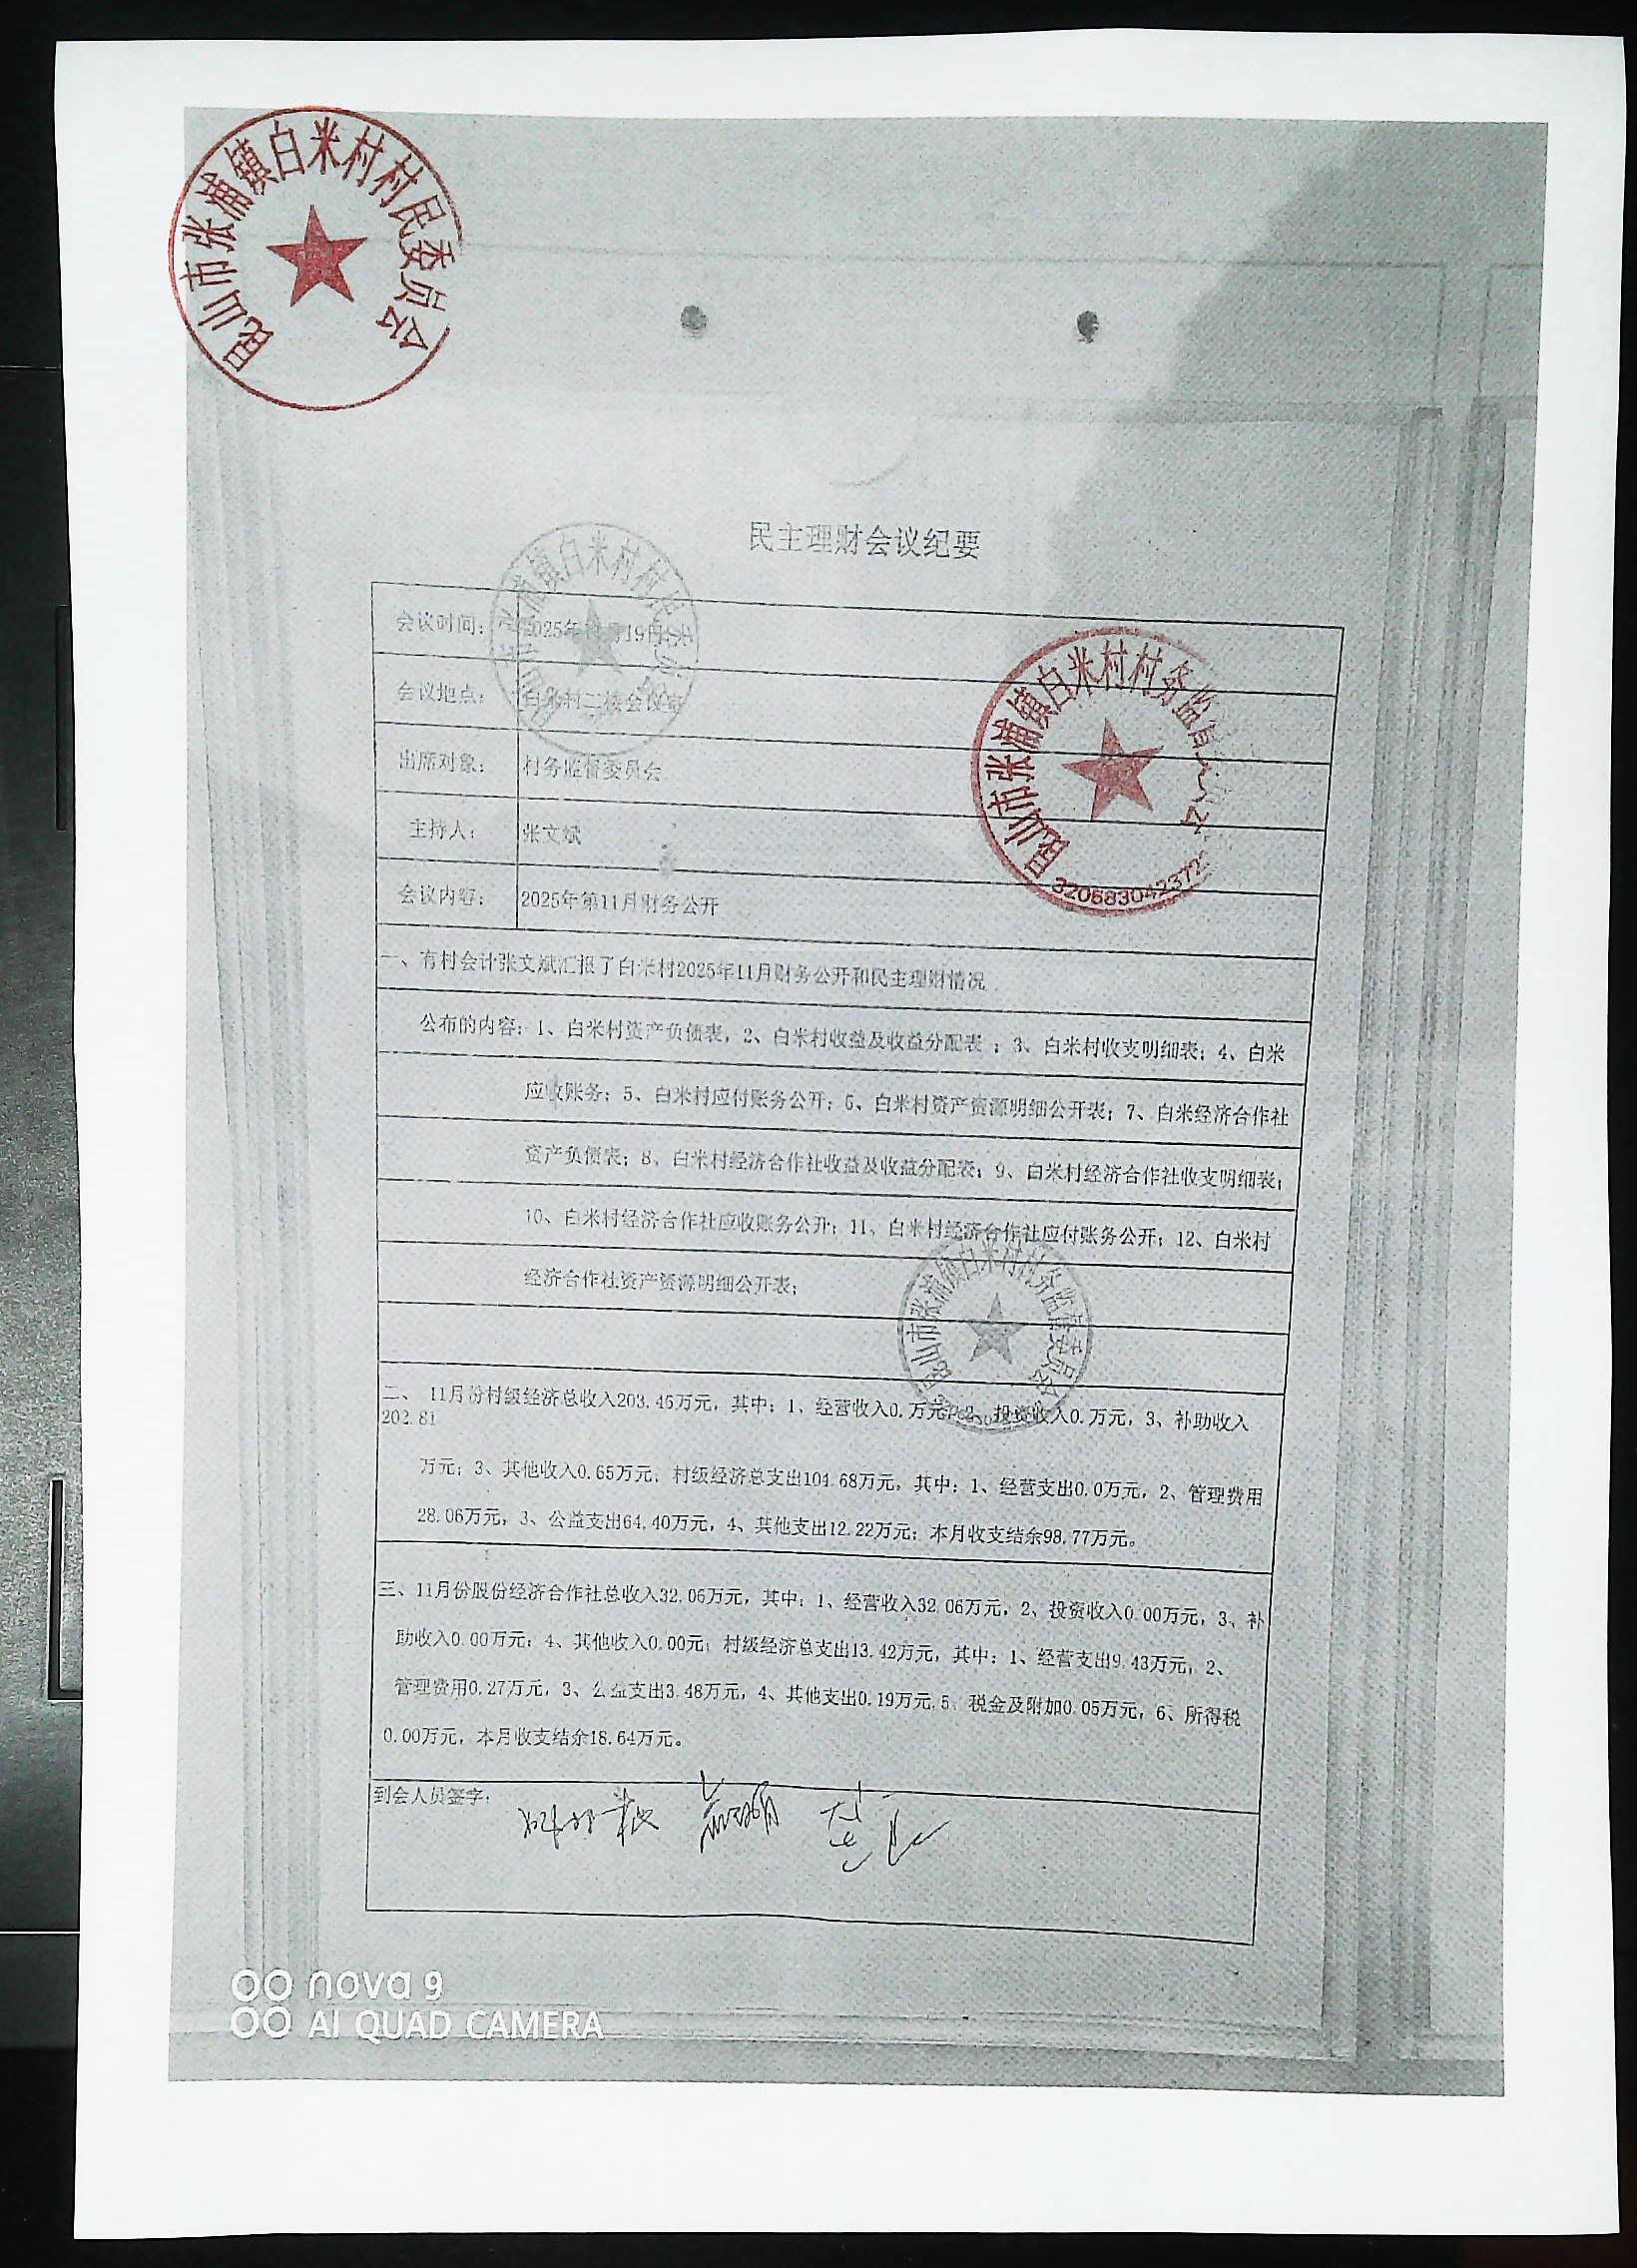 昆山市张浦镇白米村村民委员会
民主理财会议纪要
会议时间: 2025年 月19日
会议地点: 白米村二楼会议室
出席对象: 村务监督委员会
主持人: 张文斌
会议内容: 2025年第11月财务公开
昆山市张浦镇白米村村务监督
320583042372
一、有村会计张文斌汇报了白米村2025年11月财务公开和民主理财情况
公布的内容:1、白米村资产负债表,2、白米村收益及收益分配表 ;3、白米村收支明细表;4、白米
应收账务;5、白米村应付账务公开;6、白米村资产资源明细公开表;7、白米经济合作社
资产负债表;8、白米村经济合作社收益及收益分配表;9、白米村经济合作社收支明细表;
10、白米村经济合作社应收账务公开;11、白米村经济合作社应付账务公开;12、白米村
经济合作社资产资源明细公开表;
昆山市张浦镇白米村村务监督委员会
二、 11月份村级经济总收入203.46万元,其中:1、经营收入0.万元,2、投资收入0.万元,3、补助收入
202.81
万元;3、其他收入0.65万元;村级经济总支出104.68万元,其中:1、经营支出0.0万元,2、管理费用
28.06万元,3、公益支出64.40万元,4、其他支出12.22万元;本月收支结余98.77万元。
三、11月份股份经济合作社总收入32.06万元,其中:1、经营收入32.06万元,2、投资收入0.00万元,3、补
助收入0.00万元;4、其他收入0.00元;村级经济总支出13.42万元,其中:1、经营支出9.43万元,2、
管理费用0.27万元,3、公益支出3.48万元,4、其他支出0.19万元,5、税金及附加0.05万元,6、所得税
0.00万元,本月收支结余18.64万元。
到会人员签字:
nova 9
AI QUAD CAMERA